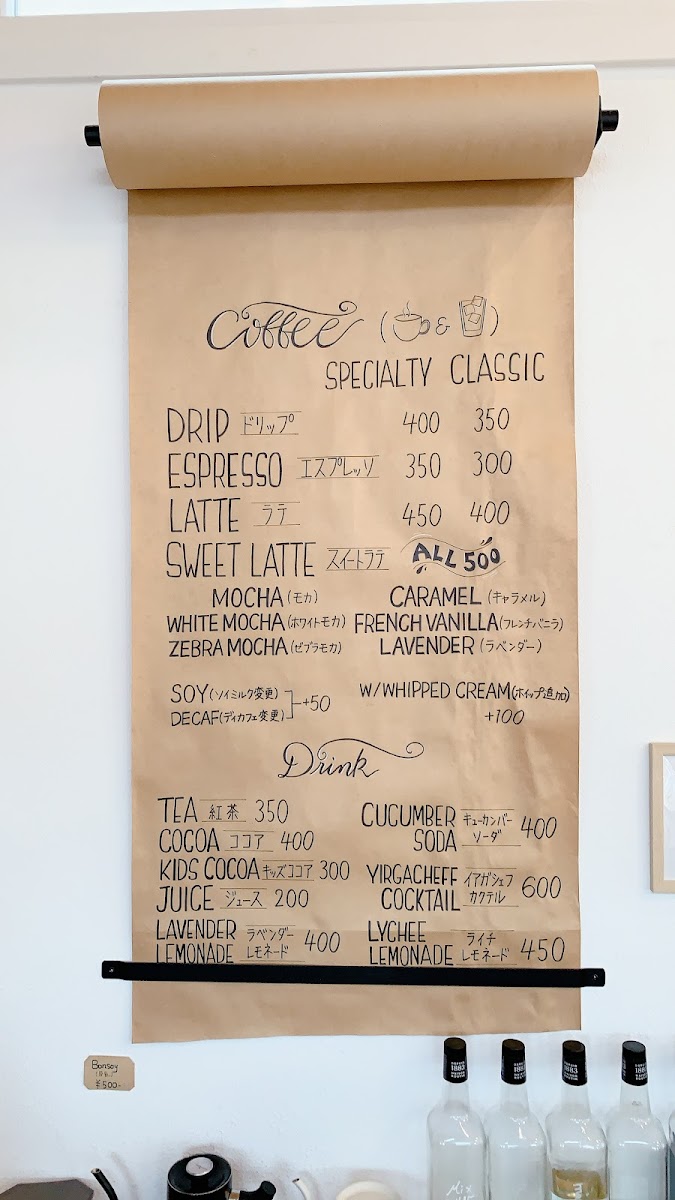 Coffee ( & )
SPECIALTY CLASSIC
DRIP ドリップ 400 350
ESPRESSO エスプレッソ 350 300
LATTE ラテ 450 400
SWEET LATTE スイートラテ ALL 500
MOCHA (モカ) CARAMEL (キャラメル)
WHITE MOCHA (ホワイトモカ) FRENCH VANILLA (フレンチバニラ)
ZEBRA MOCHA (ゼブラモカ) LAVENDER (ラベンダー)
SOY (ソイミルク変更)
DECAF (ディカフェ変更)
+50
W/WHIPPED CREAM (ホイップ追加)
+100
Drink
TEA 紅茶 350
COCOA ココア 400
KIDS COCOA キッズココア 300
JUICE ジュース 200
LAVENDER ラベンダー
LEMONADE レモネード 400
CUCUMBER キューカンバー
SODA ソーダ 400
YIRGACHEFF イアガシェフ
COCKTAIL カクテル 600
LYCHEE ライチ
LEMONADE レモネード 450
Bonsoy
¥500-
1883
1883
1883
1883
Mix